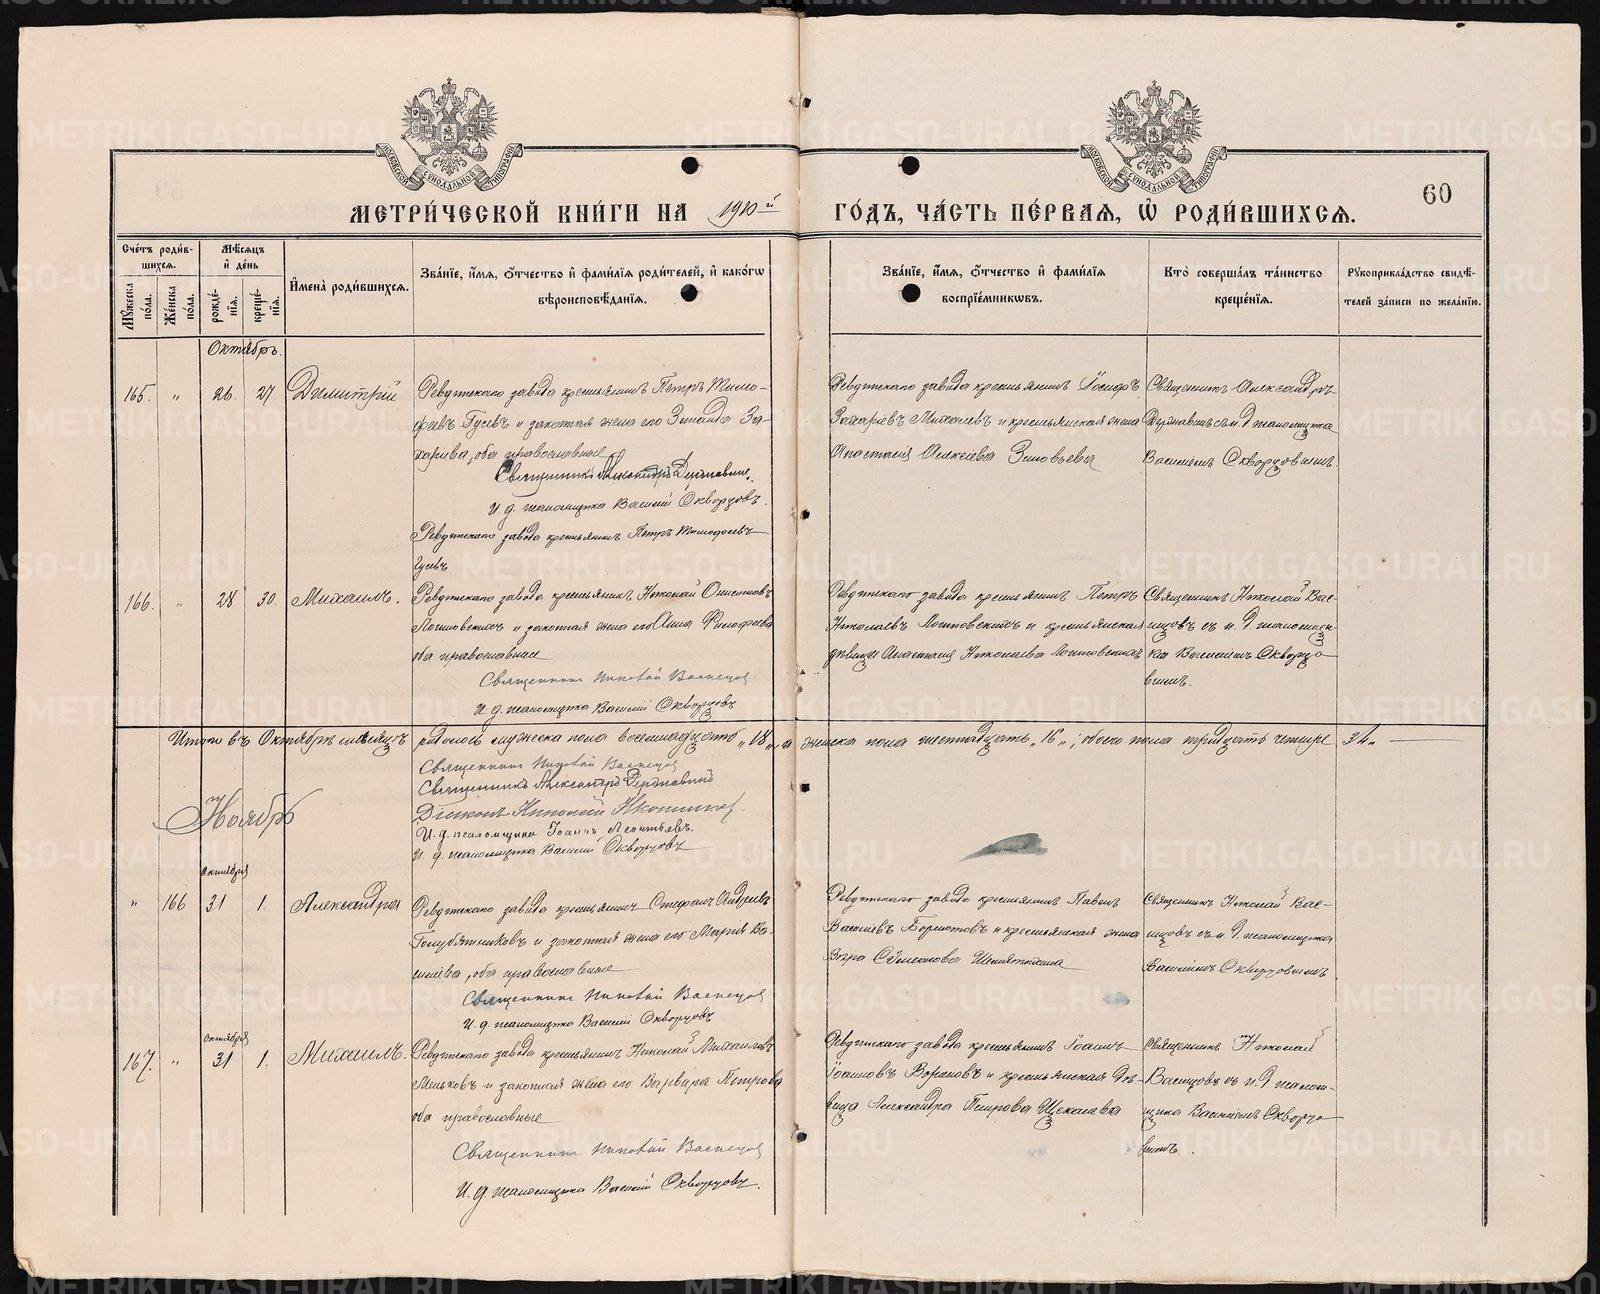 МОСКОВСКОЙ СѴНОДАЛЬНОЙ ТИПОГРАФІИ
МОСКОВСКОЙ СѴНОДАЛЬНОЙ ТИПОГРАФІИ
60
МЕТРИ́ЧЕСКОЙ КНИ́ГИ НА 1910 й ГО́ДЪ, ЧА́СТЬ ПЕ́РВАѦ, Ѡ РОДИ́ВШИХСѦ.
Сче́тъ роди́в-
шихсѧ.
Мꙋ́жеска по́ла.
Же́нска по́ла.
Мѣ́сѧцъ
и҆ де́нь
рожде́-
нїѧ.
креще́-
нїѧ.
И҆мена̀ роди́вшихсѧ.
Зва́нїе, и҆́мѧ, ѻ҆́тчество и҆ фами́лїѧ роди́телей, и҆ како́гѡ
вѣроисповѣ́данїѧ.
Зва́нїе, и҆́мѧ, ѻ҆́тчество и҆ фами́лїѧ
воспрїе́мникѡвъ.
Кто̀ соверша́лъ та́инство
креще́нїѧ.
Рꙋкоприкла́дство свидѣ́-
телей за́писи по жела́нїю.
Октябрь.
165. " 26. 27. Димитрій
Ревдинскаго завода крестьянинъ Петръ Тимо-
феевъ Гусевъ и законная жена его Зинаида За-
харова, оба православные
Священникъ Александръ Державинъ.
И. д. псаломщика Василій Скворцовъ.
Ревдинскаго завода крестьянинъ Петръ Тимофеевъ
Гусевъ
Ревдинскаго завода крестьянинъ Іосифъ
Захаріевъ Михалевъ и крестьянская жена
Анастасія Алексіева Зиновьева
Священникъ Александръ
Державинъ съ и. д псаломщика
Василіемъ Скворцовымъ.
166. " 28 30. Михаилъ.
Ревдинскаго завода крестьянинъ Николай Онисимовъ
Логиновскихъ и законная жена его Анна Филофеева
оба православные
Священникъ Николай Васнецов
И д. псаломщика Василій Скворцовъ
Ревдинскаго завода крестьянинъ Петръ
Николаевъ Логиновскихъ и крестьянская
девица Анастасія Николаева Логиновскихъ
Священникъ Николай Вас-
нецовъ съ и. д псаломщи-
ка Василіемъ Скворцо-
вымъ.
Итого въ Октябрѣ мѣсяцѣ родилось мужеска пола восемнадцать „18„ и женска пола шестнадцать „16„; обоего пола тридцать четыре 34„
Священникъ Николай Васнецов
Священникъ Александръ Державинъ
Діаконъ Николай
И. д. псаломщика Іоаннъ Леонтьевъ.
И. д. псаломщика Василій Скворцовъ
Ноябрь
октября
" 166 31 1. Александра
Ревдинскаго завода крестьянинъ Стефанъ Андреевъ
Голубятниковъ и законная жена его Марія Ва-
силіева, оба православные
Священникъ Николай Васнецов
И. д. псаломщика Василій Скворцовъ.
Ревдинскаго завода крестьянинъ Павелъ
Василіевъ и крестьянская жена
Вѣра Сѵмеонова
Священникъ Николай Вас-
нецовъ съ и. д. псаломщика
Василіемъ Скворцовымъ.
октября
167. " 31 1. Михаилъ.
Ревдинскаго завода крестьянинъ Николай Михаиловъ
Меньковъ и законная жена его Варвара Петрова
оба православные
Священникъ Николай Васнецов
И. д. псаломщика Василій Скворцовъ.
Ревдинскаго завода крестьянинъ Іоаннъ
Іоанновъ и крестьянская дѣ-
вица Александра Петрова Щекалева
Священникъ Николай
Васнецовъ съ и. д псалом-
щика Василіемъ Скворцо-
вымъ.
METRIKI.GASO-URAL.RU